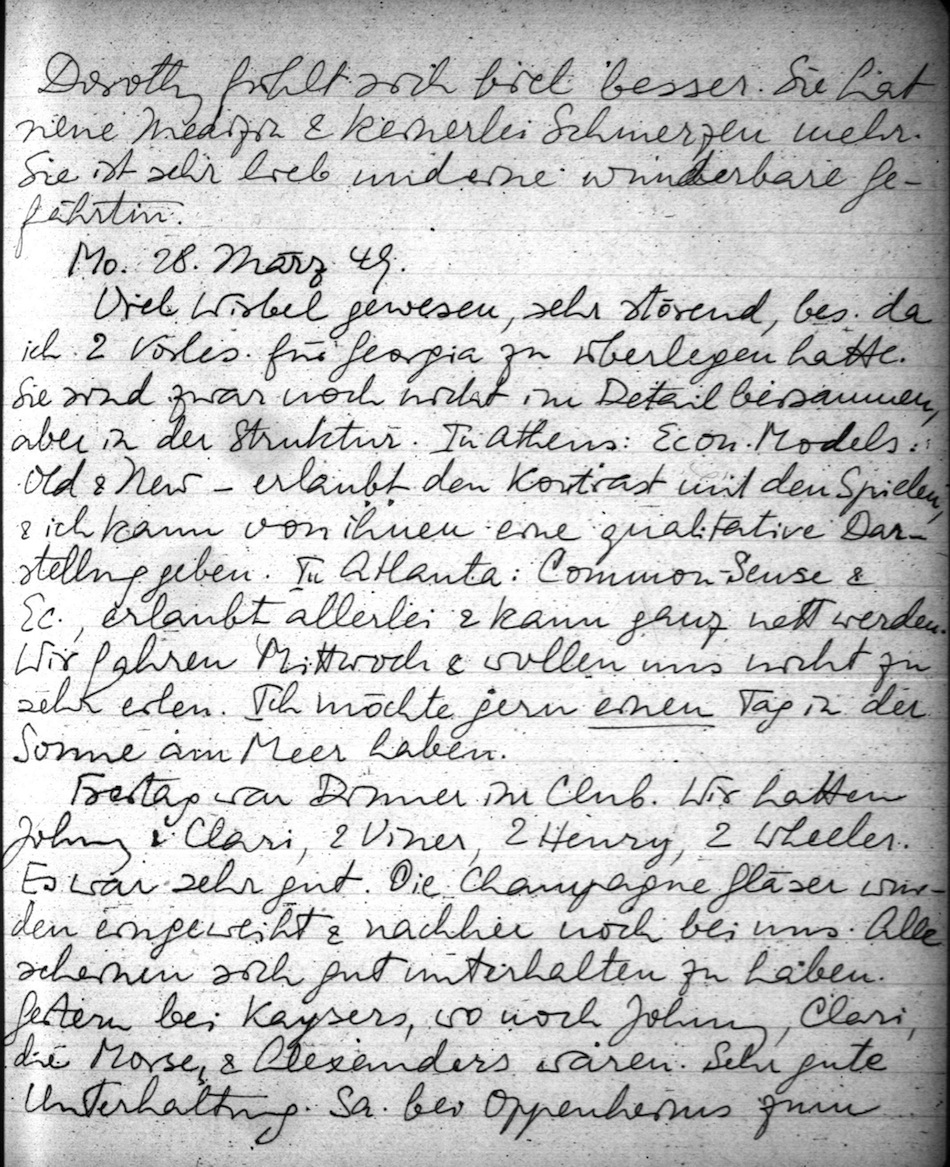 Dorothy fühlt sich viel besser. Sie hat
neue Medizin & keinerlei Schmerzen mehr.
Sie ist sehr lieb und eine wunderbare Ge-
fährtin.
Mo. 28. März 49.
Viel Wirbel gewesen, sehr störend, bes. da
ich 2 Vorles. für Georgia zu überlegen hatte.
Sie sind zwar noch nicht im Detail beisammen,
aber in der Struktur. In Athens: Econ. Models:
Old & New – erlaubt den Kontrast mit den Spielen,
& ich kann von ihnen eine qualitative Dar-
stellung geben. In Atlanta: Common-Sense &
Ec., erlaubt allerlei & kann ganz nett werden.
Wir fahren Mittwoch & wollen uns nicht zu
sehr eilen. Ich möchte gern einen Tag in der
Sonne am Meer haben.
Freitag war Dinner im Club. Wir hatten
Johnny & Clari, 2 Viner, 2 Henry, 2 Wheeler.
Es war sehr gut. Die Champagne gläser wur-
den eingeweiht & nachher noch bei uns. Alle
scheinen sich gut unterhalten zu haben.
Gestern bei Kaysers, wo noch Johnny, Clari,
die Morse, & Alexanders waren. Sehr gute
Unterhaltung. Sa. bei Oppenheims zum